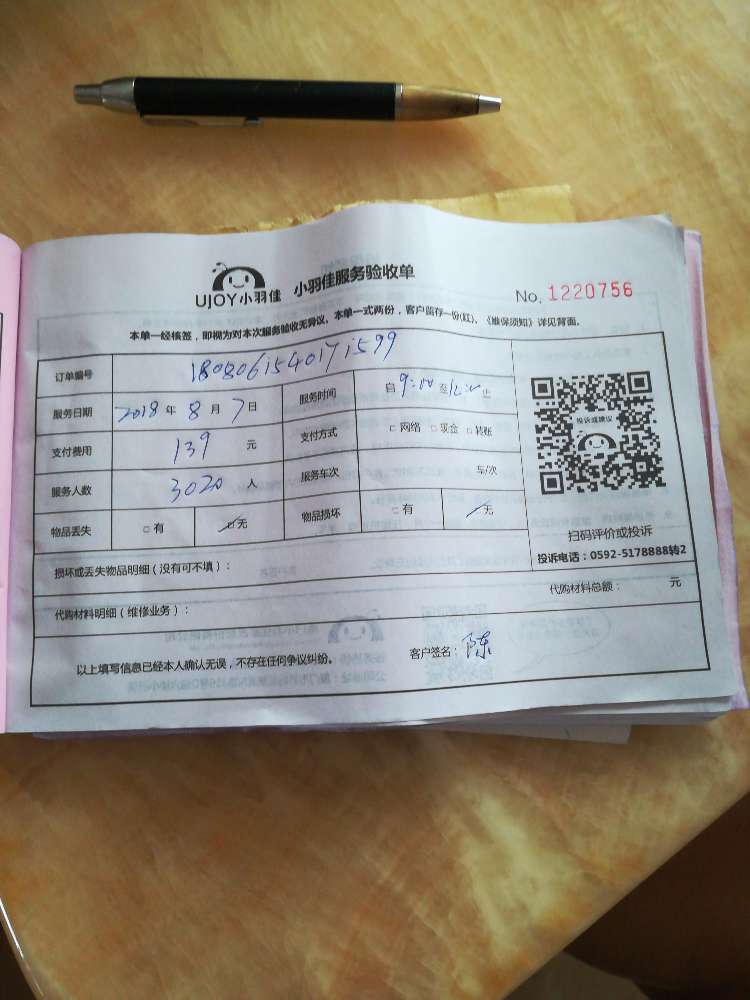 UJOY小羽佳 小羽佳服务验收单
No. 1220756
本单一经核签，即视为对本次服务验收无异议。本单一式两份，客户留存一份(红)。《维保须知》详见背面。
订单编号 1808061540171599
服务日期 2018 年 8 月 7 日 服务时间 自 9:00 至 12:00 止
支付费用 139 元 支付方式 □ 网络 □ 现金 □ 转账
服务人数 3020 人 服务车次 车/次
物品丢失 □ 有 □ 无 物品损坏 □ 有 □ 无
投诉或建议
扫码评价或投诉
投诉电话：0592-5178888转2
损坏或丢失物品明细（没有可不填）：
代购材料明细（维修业务）： 代购材料总额： 元
以上填写信息已经本人确认无误，不存在任何争议纠纷。 客户签名： 陈